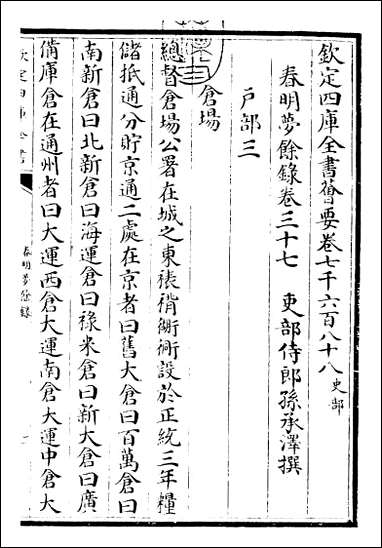 欽定四庫全書薈要卷七千六百八十八史部
春明夢餘錄卷三十七　吏部侍郎孫承澤撰
戶部三
倉場
總督倉場公署在城之東裱褙衚衕設於正統三年糧
儲抵通分貯京通二處在京者曰舊大倉曰百萬倉曰
南新倉曰北新倉曰海運倉曰祿米倉曰新大倉曰廣
備庫倉在通州者曰大運西倉大運南倉大運中倉大
欽定四庫全書
春明夢餘錄
一